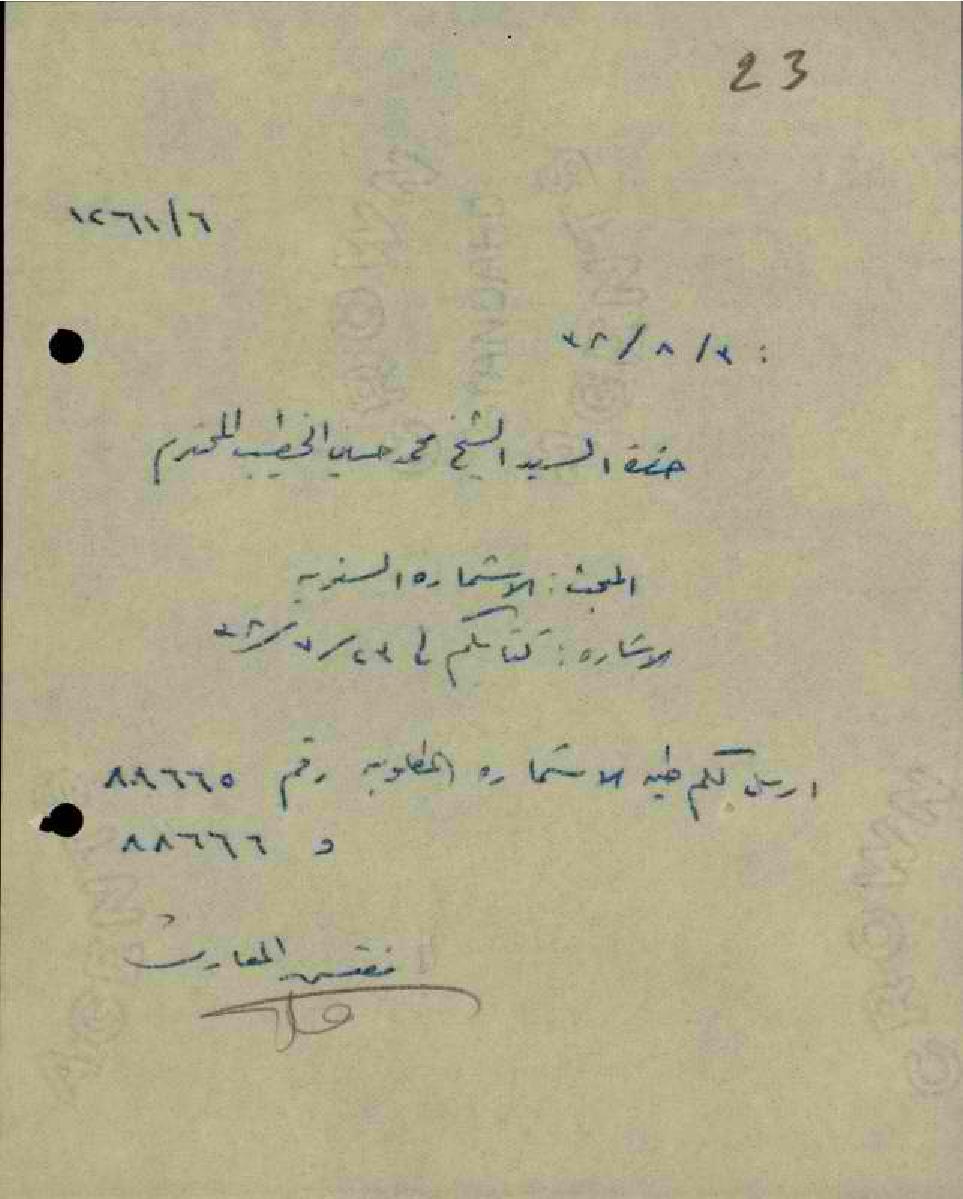 23
١٢٦١/٦
٣٨/٨/٣ :
حضرة السيد الشيخ محمد حسين الخطيب المحترم
المبحث : الاستماره السنويه
الاشاره : كتابكم في ٣٨/٧/٢٣
ارسل لكم طيه الاستماره المطلوبه رقم ٨٨٦٦٥
و ٨٨٦٦٦
مفتش المعارف